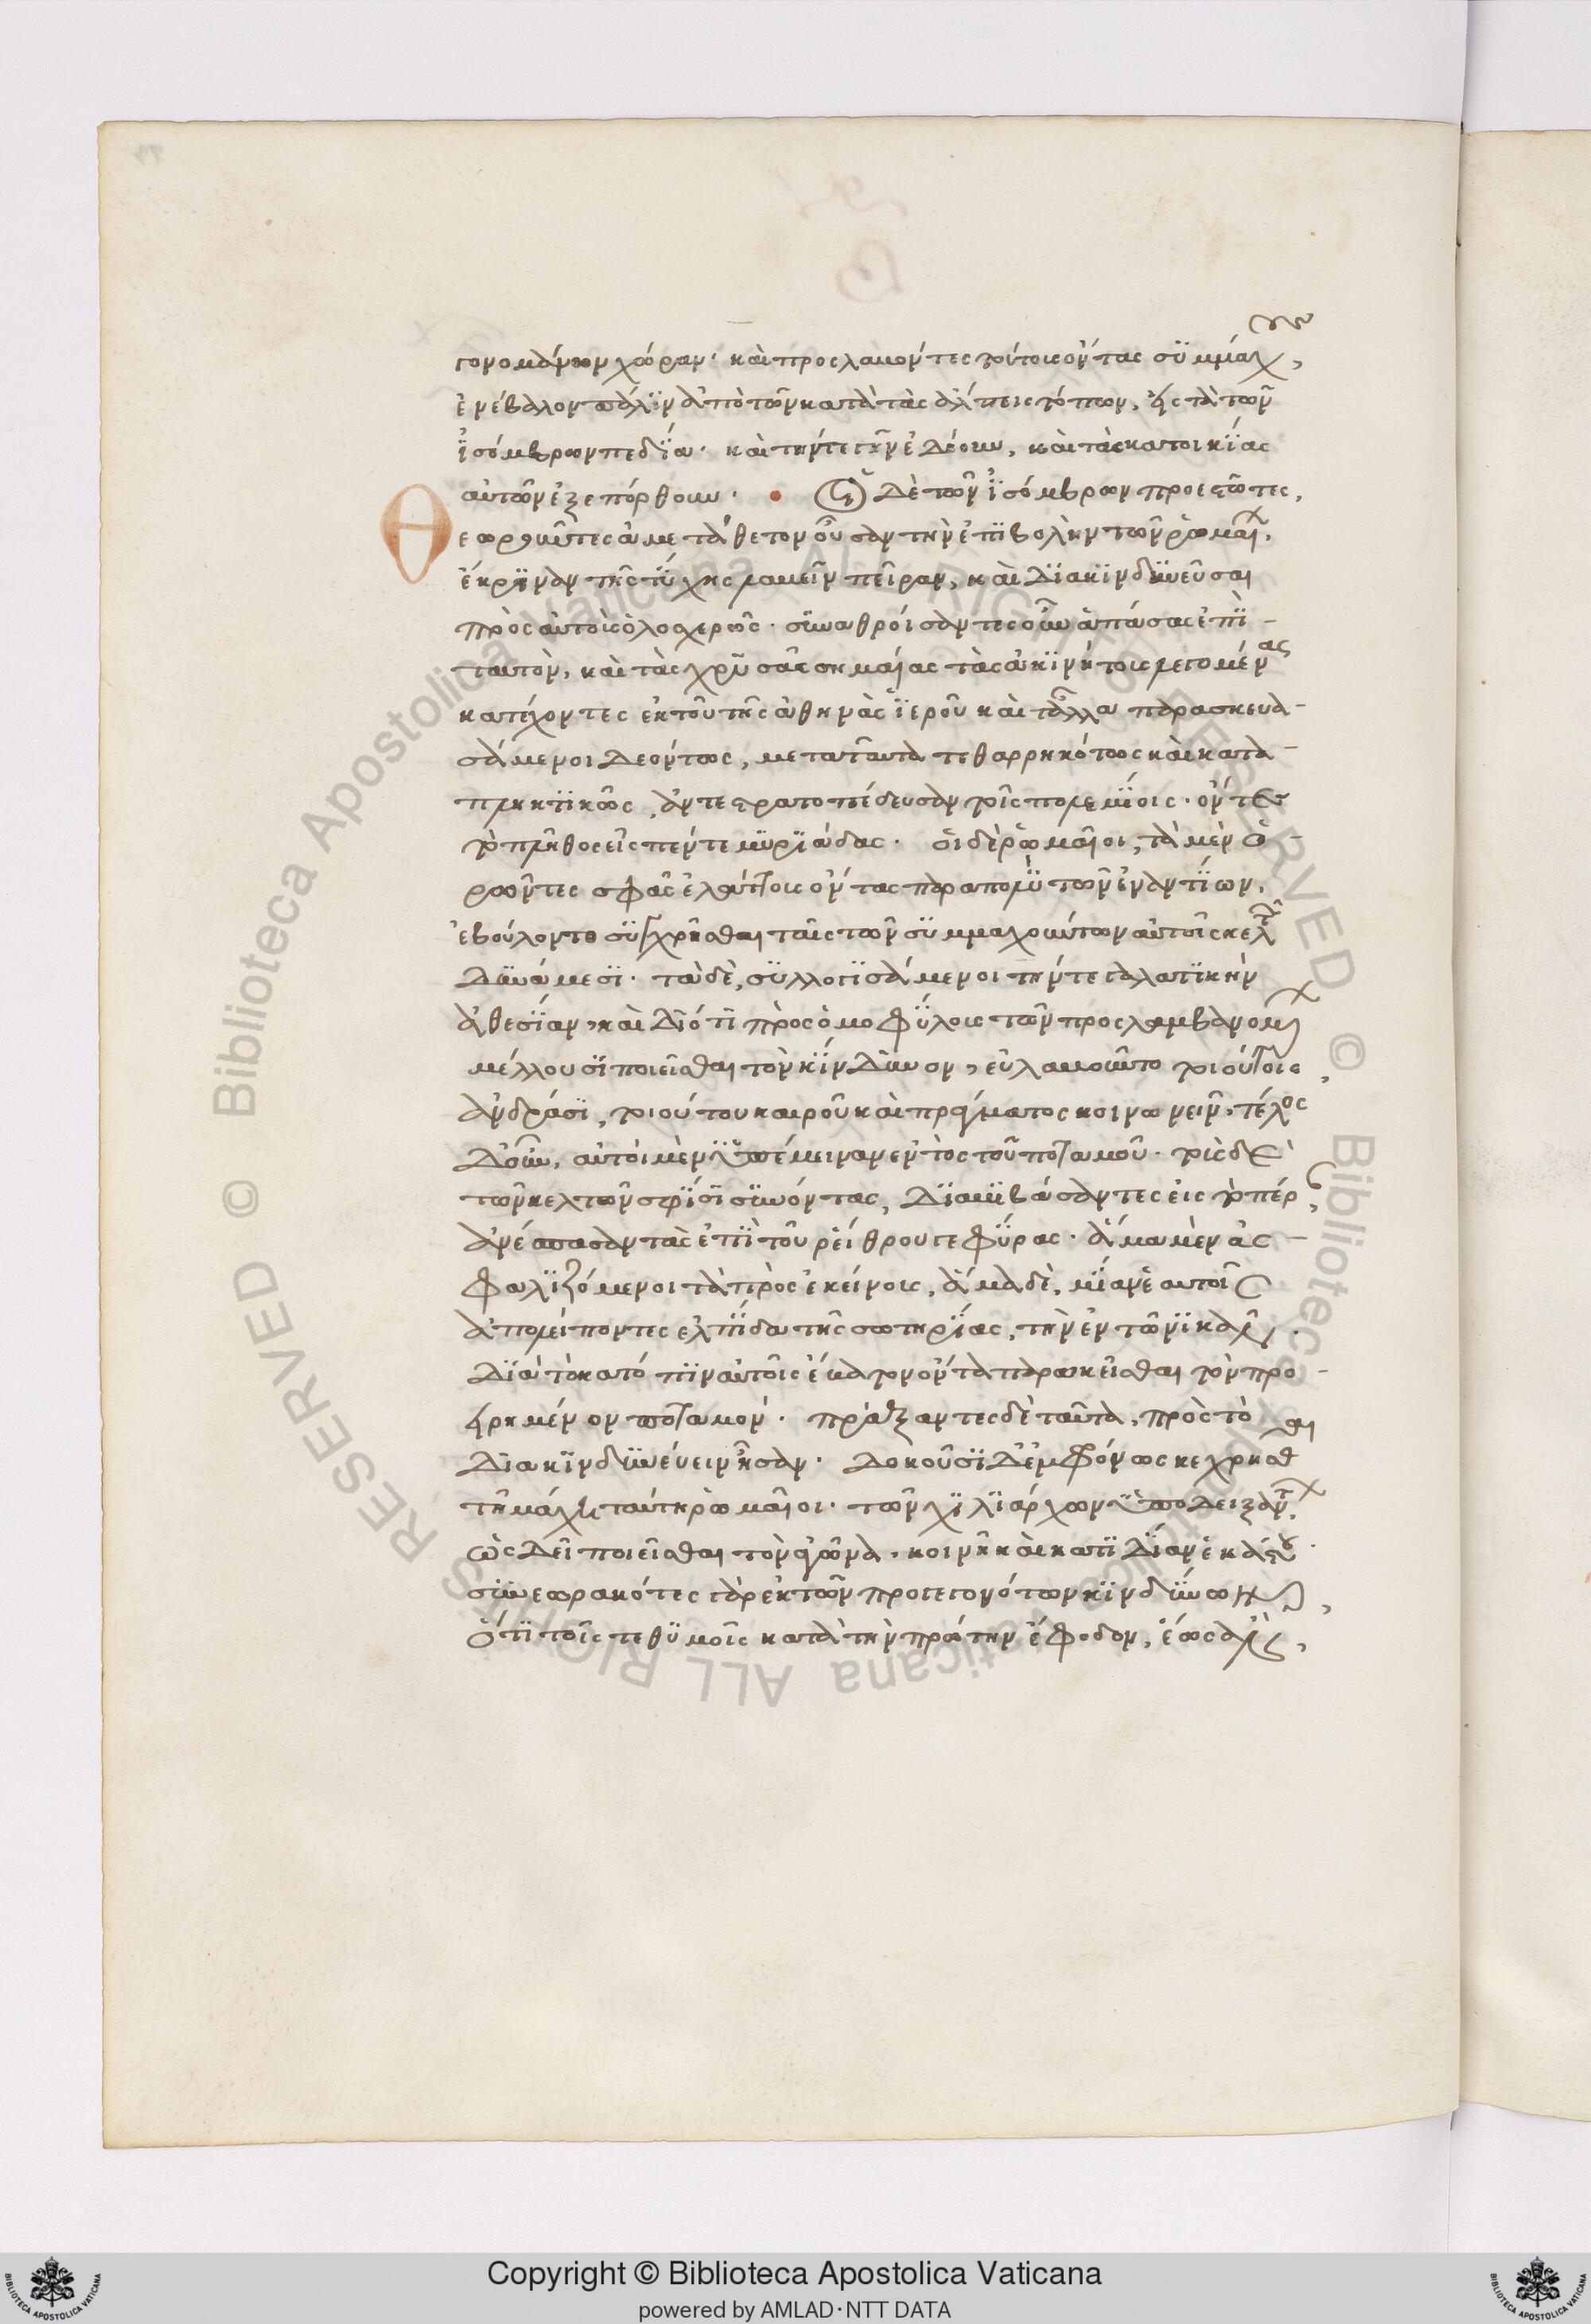 γονομάνων χώραν· καὶ προσλαβόντες τούτους ὄντας συμμάχους,
ἐνέβαλον πάλιν ἀπὸ τῶν κατὰ τὰς ἄλπεις τόπων, εἰς τὰ τῶν
ἰσόμβρων πεδία· καὶ τήν τε γῆν ἐδῄουν, καὶ τὰς κατοικίας
αὐτῶν ἐξεπόρθουν· Οἱ δὲ τῶν ἰσόμβρων προεστῶτες,
Θεωροῦντες ἀμετάθετον οὖσαν τὴν ἐπιβολὴν τῶν ῥωμαίων,
ἔκριναν τῆς τύχης λαβεῖν πεῖραν, καὶ διακινδυνεῦσαι
πρὸς αὐτοὺς ὁλοσχερῶς· συναθροίσαντες οὖν ἁπάσας ἐπὶ
ταυτὸν, καὶ τὰς χρυσᾶς σημαίας τὰς ἀκινήτους λεγομένας
κατέχοντες ἐκ τοῦ τῆς ἀθηνᾶς ἱεροῦ καὶ τἄλλα παρασκευα-
σάμενοι δεόντως, μετὰ ταῦτα τεθαρρηκότως καὶ κατα-
πληκτικῶς, ἀντεστρατοπέδευσαν τοῖς πολεμίοις· ὄντες
τὸ πλῆθος εἰς πέντε μυριάδας· οἱ δὲ ῥωμαῖοι, τὰ μὲν ὁ-
ρῶντες σφᾶς ἐλάττους ὄντας παραπολὺ τῶν ἐναντίων,
ἐβούλοντο συγχρῆσθαι ταῖς τῶν συμμαχούντων αὐτοῖς κελτῶν
δυνάμεσι· τὰ δὲ, συλλογισάμενοι τήν τε γαλατικὴν
ἀθεσίαν, καὶ διότι πρὸς ὁμοφύλους τῶν προσλαμβανομένων
μέλλουσι ποιεῖσθαι τὸν κίνδυνον, εὐλαβοῦντο τοιούτοις
ἀνδράσι, τοιούτου καιροῦ καὶ πράγματος κοινωνεῖν, τέλος
δ οὖν, αὐτοὶ μὲν ὑπέμειναν ἐντὸς τοῦ ποταμοῦ· τοὺς δὲ
τῶν κελτῶν σφίσι συνόντας, διαβιβάσαντες εἰς τὸ πέραν,
ἀνέσπασαν τὰς ἐπὶ τοῦ ῥείθρου γεφύρας· ἅμα μὲν ἀσ-
φαλιζόμενοι τὰ πρὸς ἐκείνους, ἅμα δὲ, μίαν ἑαυτοῖς
ἀπολείποντες ἐλπίδα τῆς σωτηρίας, τὴν ἐν τῷ νικᾶν·
διὰ τὸ κατόπιν αὐτοῖς ἄβατον ὄντα παρακεῖσθαι τὸν προ-
ειρημένον ποταμόν· πράξαντες δὲ ταῦτα, πρὸς τὸ
διακινδυνεύειν ἦσαν· δοκοῦσι δ ἐμφρόνως κεχρῆσθαι
τῇ μάχῃ ταύτῃ ῥωμαῖοι· τῶν χιλιάρχων ὑποδειξάντων,
ὡς δεῖ ποιεῖσθαι τὸν ἀγῶνα, κοινῇ καὶ κατιδίαν ἑκάστους·
συνεωρακότες γὰρ ἐκ τῶν προγεγονότων κινδύνων,
ὅτι τοῖς τε θυμοῖς κατὰ τὴν πρώτην ἔφοδον, ἕως ἂν,